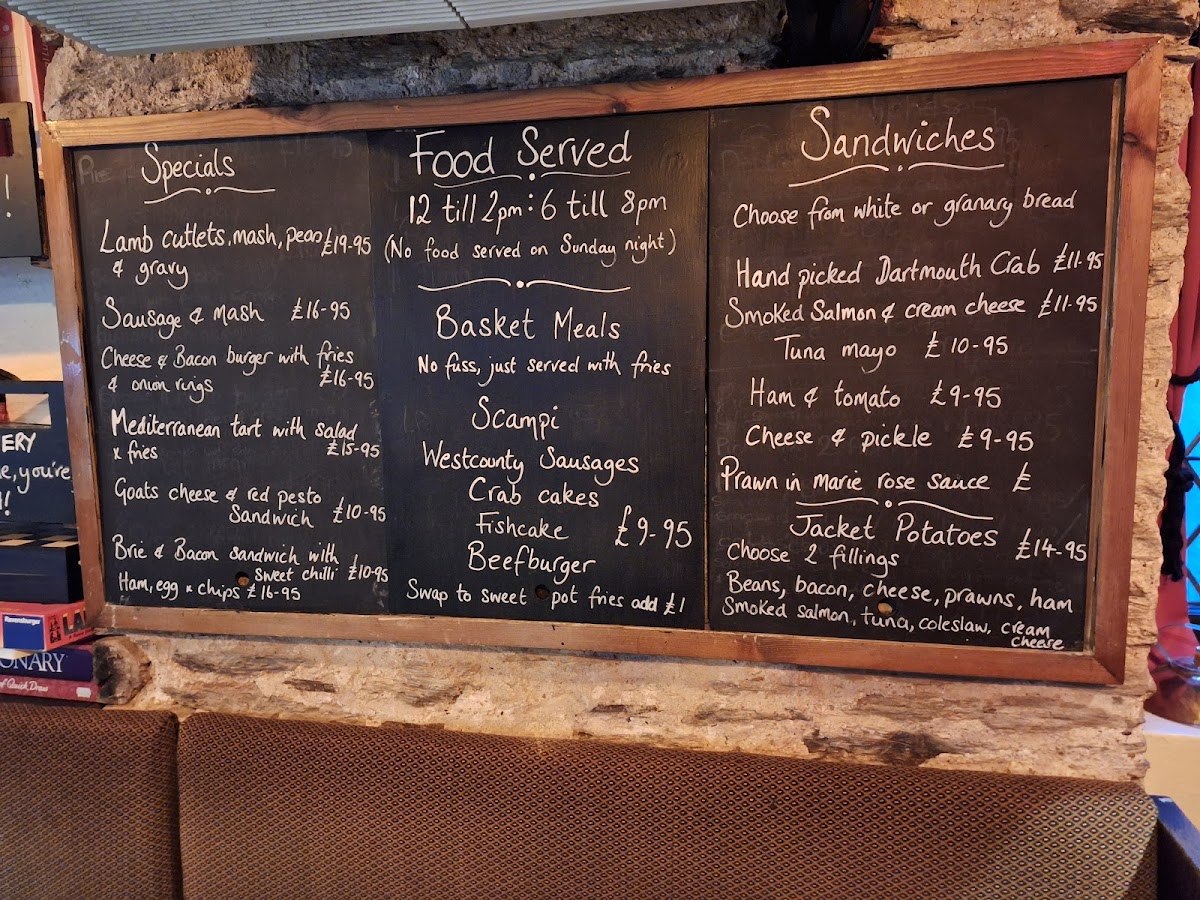 Specials
Lamb cutlets, mash, peas £19-95
& gravy
Sausage & mash £16-95
Cheese & Bacon burger with fries
& onion rings £16-95
Mediterranean tart with salad
x fries £15-95
Goats cheese & red pesto
Sandwich £10-95
Brie & Bacon sandwich with
sweet chilli £10-95
Ham, egg x chips £16-95
Food Served
12 till 2pm : 6 till 8pm
(No food served on Sunday night)
Basket Meals
No fuss, just served with fries
Scampi
Westcounty Sausages
Crab cakes
Fishcake £9-95
Beefburger
Swap to sweet pot fries add £1
Sandwiches
Choose from white or granary bread
Hand picked Dartmouth Crab £11-95
Smoked Salmon & cream cheese £11-95
Tuna mayo £10-95
Ham & tomato £9-95
Cheese & pickle £9-95
Prawn in marie rose sauce £
Jacket Potatoes £14-95
Choose 2 fillings
Beans, bacon, cheese, prawns, ham
Smoked salmon, tuna, coleslaw, cream
cheese
!
ERY
e, you're
!
Ravensburger
LA
ONARY
of Quick Draw